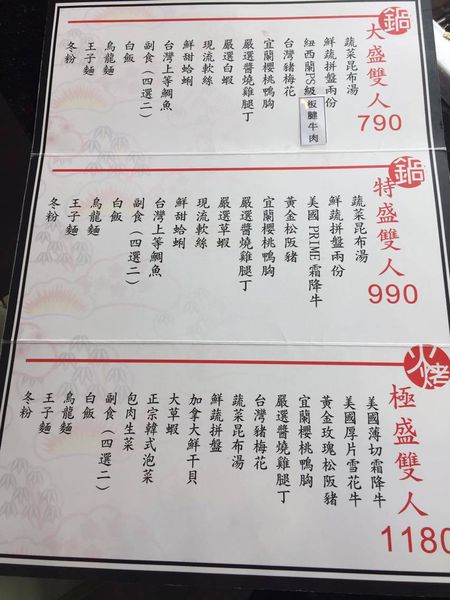 鍋
大盛雙人
790
蔬菜昆布湯
鮮蔬拼盤兩份
紐西蘭PS級板腱牛肉
台灣豬梅花
宜蘭櫻桃鴨胸
嚴選醬燒雞腿丁
嚴選白蝦
現流軟絲
鮮甜蛤蜊
台灣上等鯛魚
副食(四選二)
白飯
烏龍麵
王子麵
冬粉
鍋
特盛雙人
990
蔬菜昆布湯
鮮蔬拼盤兩份
美國PRIME霜降牛
黃金松阪豬
宜蘭櫻桃鴨胸
嚴選醬燒雞腿丁
嚴選草蝦
現流軟絲
鮮甜蛤蜊
台灣上等鯛魚
副食(四選二)
白飯
烏龍麵
王子麵
冬粉
火烤
極盛雙人
1180
美國薄切霜降牛
美國厚片雪花牛
黃金玫瑰松阪豬
宜蘭櫻桃鴨胸
嚴選醬燒雞腿丁
台灣豬梅花
蔬菜昆布湯
鮮蔬拼盤
加拿大鮮干貝
大草蝦
正宗韓式泡菜
包肉生菜
副食(四選二)
白飯
烏龍麵
王子麵
冬粉